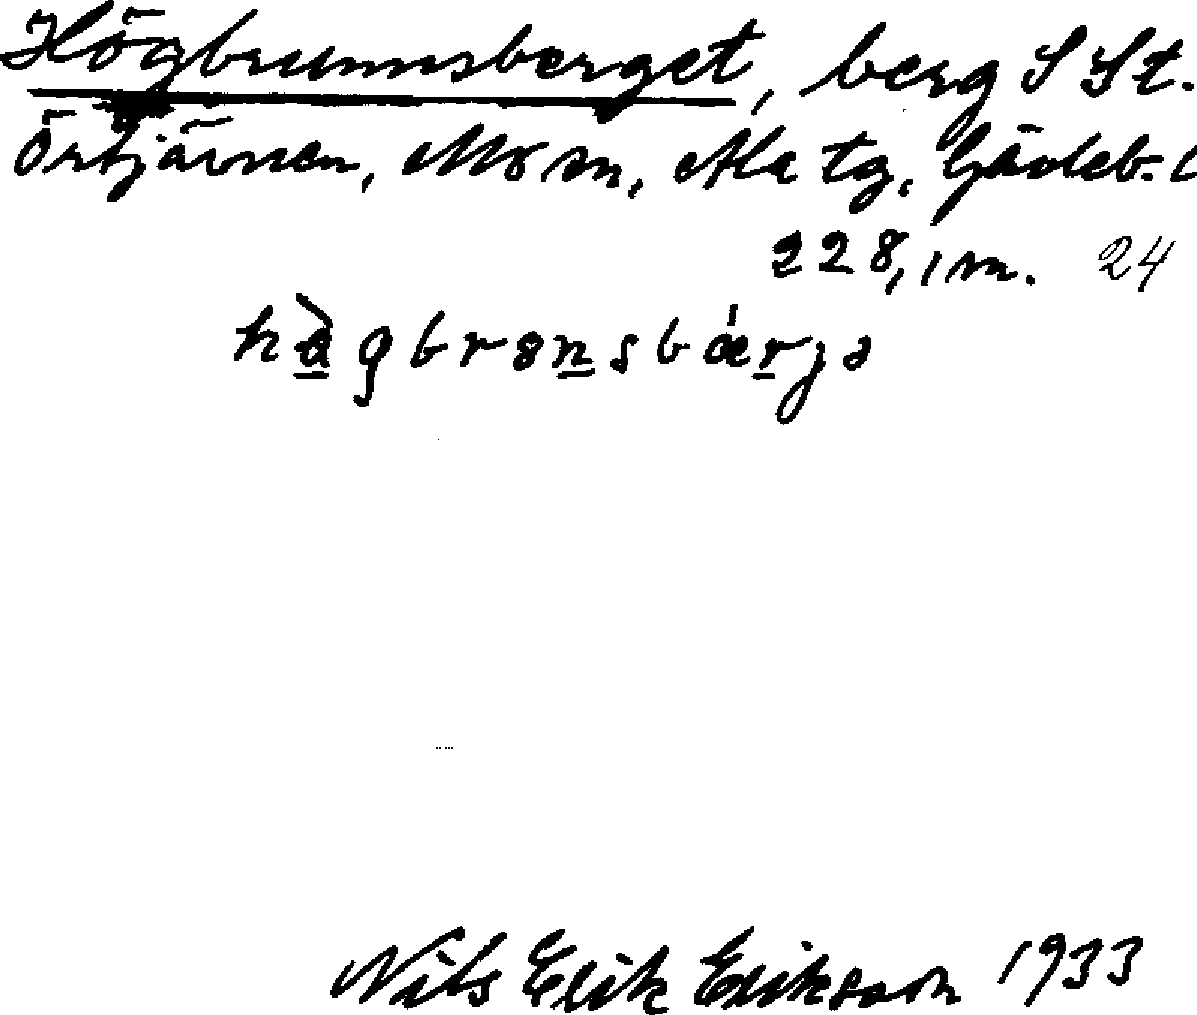 Högbrunnsberget, berg S St.
Örtjärnen, Mo sn, Ala tg, Gävleb. l
228,1 m. 24
Nils Erik Eriksson 1933